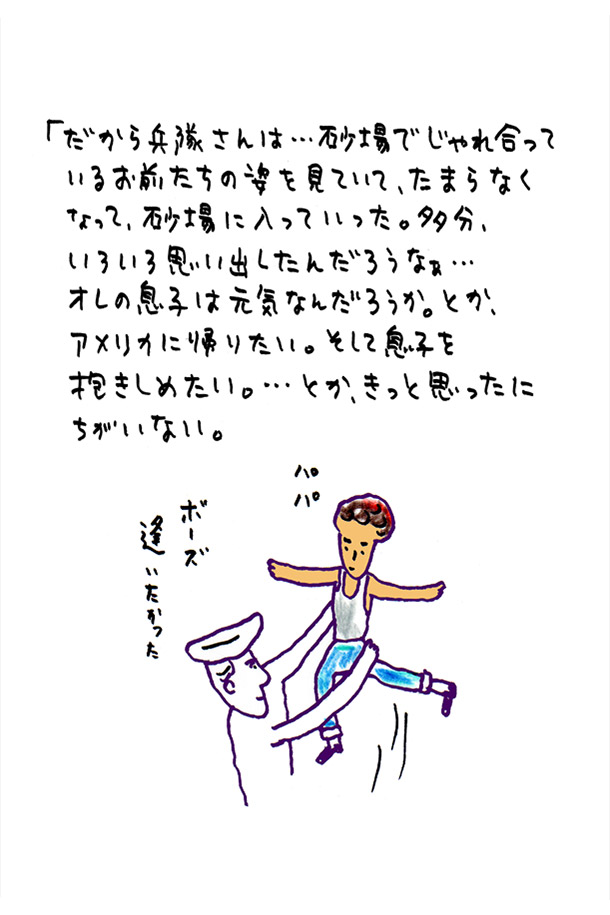 「だから兵隊さんは…砂場でじゃれ合って
いるお前たちの姿を見ていて、たまらなく
なって、砂場に入っていった。多分、
いろいろ思い出したんだろうなぁ…
オレの息子は元気なんだろうか。とか、
アメリカに帰りたい。そして息子を
抱きしめたい。…とか、きっと思ったに
ちがいない。
パパ
ボーズ
逢いたかった